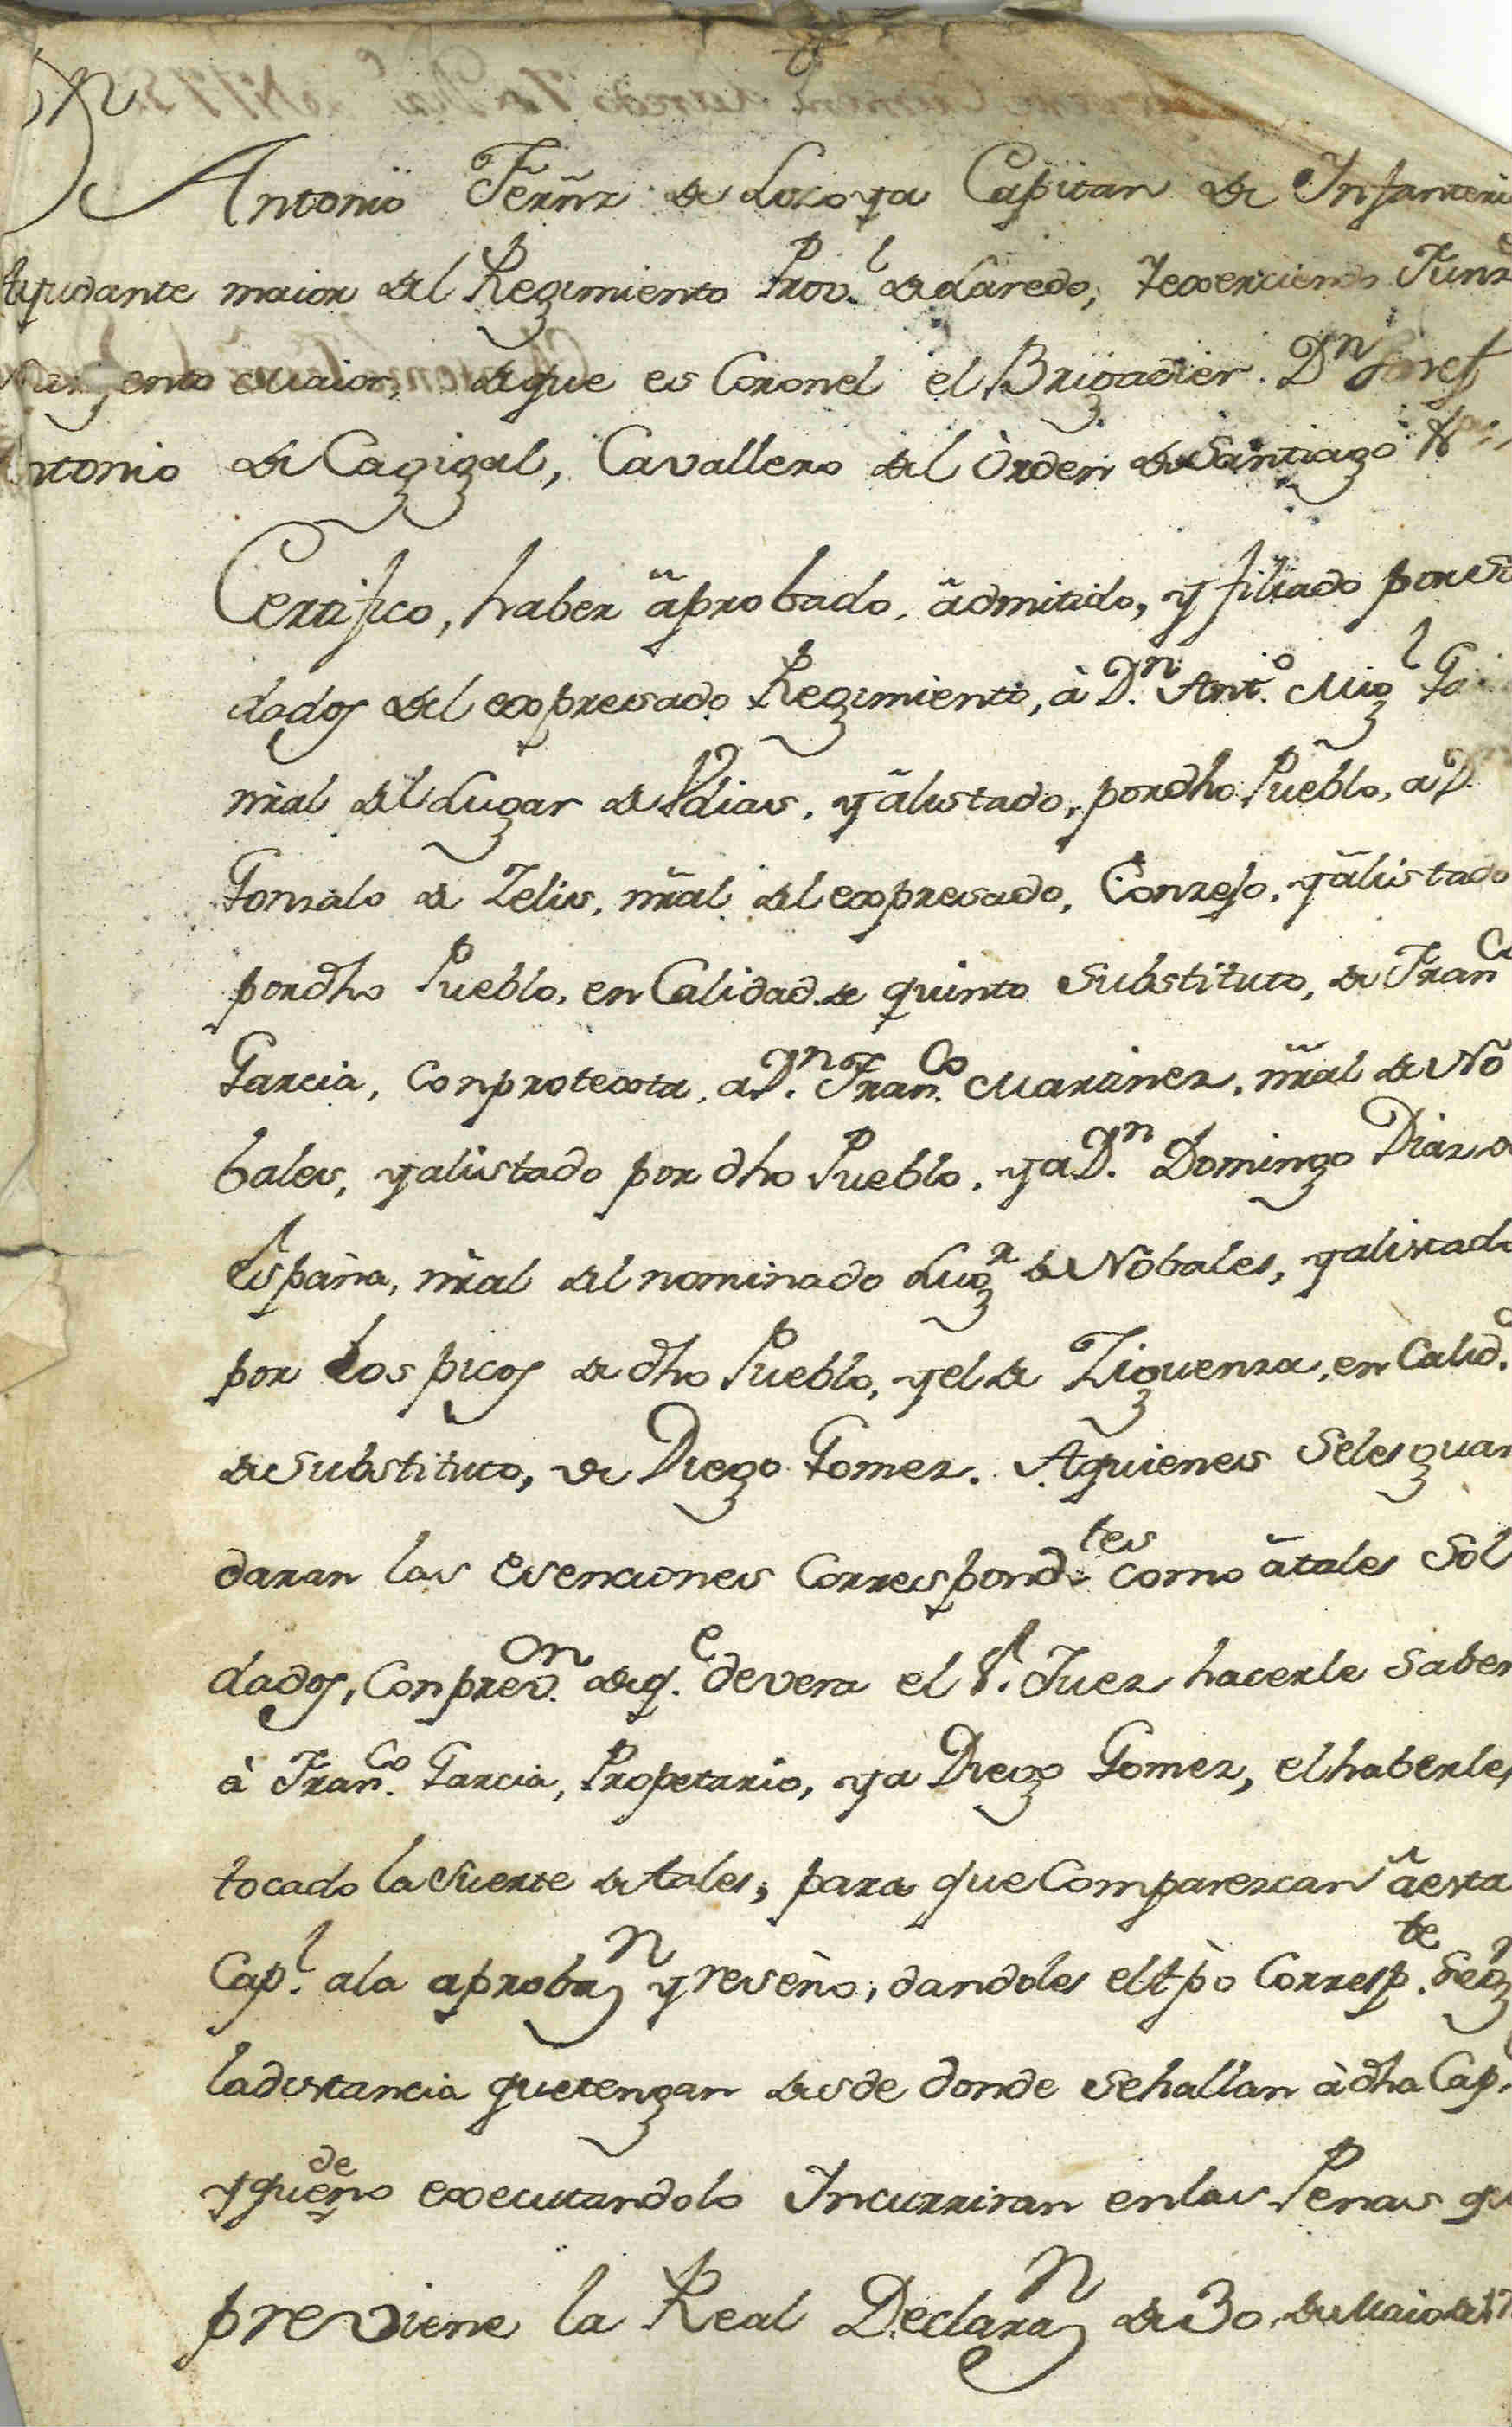 Dn
Antonio Fernz. de Lozoya Capitan de Infanteri
Ayudante maior del Regimiento Prov.l de Laredo, Yexerciendo Funz
Sargento maior, de que es Coronel el Brigadier. Dn Josef
Antonio de Cagigal, Cavallero del Orden de Santiago
Certifico, haber aprobado, admitido, y filiado por Sol
dados del expresado Regimiento, à D.n Ant.o Mig.l Ga
nr̃al del Lugar de Udias, y alistado, por dho Pueblo, a D.
Gonzalo de Zelis, nr̃al del expresado, Conzejo, y alistado
por dho Pueblo, en Calidad de quinto Substituto, de Franco
Garcia, con protexta, a D.n Fran.co Martinez, nr̃al de No
bales, y alistado por dho Pueblo, y a D.n Domingo Diaz de
España, nr̃al del nominado Lugr de Nobales, y alistado
por Los picos de dho Pueblo, y el de Ziguenza, en Calid.
de Substituto, de Diego Gomez. A quienes Seles guar
daran las esenciones Correspond.tes como atales Sol
dados, Con prev.on de q.e devera el S.r Juez hacerle Saber
à Fran.co Garcia, Propetario, y a Diego Gomez, el haberles
tocado la Suerte de tales, para que Comparezcan a esta
Cap.l ala aprobazn y reseño, dandoles el tpo Corresp.te Seg
la distancia que tengan desde donde Se hallan à dha Cap.
y que de no executandolo Incurriran en las Penas qu
previene la Real Declarazn de 30 de Maio de 17